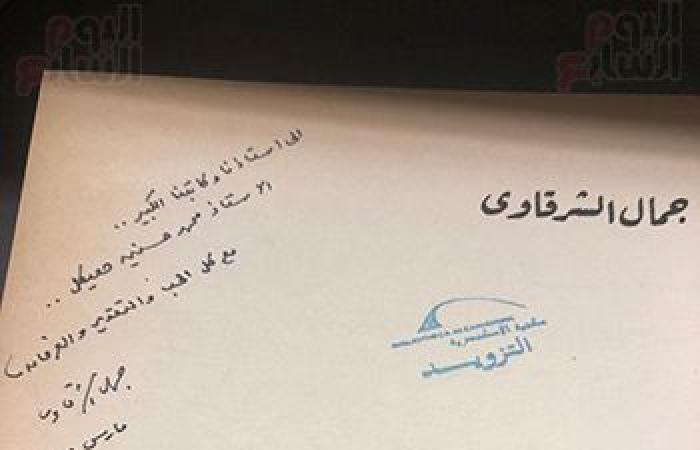 اليوم السابع
اليوم السابع
الى استاذنا وكاتبنا الكبير ..
الاستاذ محمد حسنين هيكل ..
مع كل الحب والتقدير والعرفان
جمال الشرقاوى
مارس
جمال الشرقاوى
BIBLIOTHECA ALEXANDRINA
مكتبة الاسكندرية
التزويد